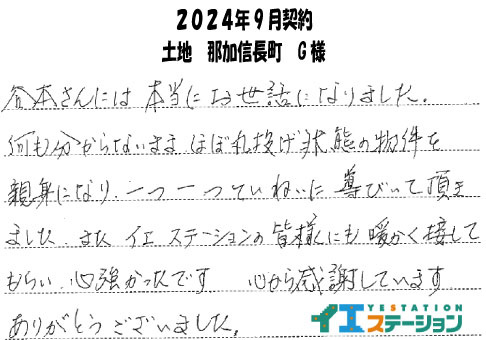 2024年9月契約
土地 那加信長町 G様
谷本さんには 本当に お世話になりました。
何も分からないまま ほぼ丸投げ状態の物件を
親身になり、一つ一つていねいに 導びいて頂き
ました。また イエステーションの 皆様にも 暖かく接して
もらい、心強かったです 心から感謝しています
ありがとうございました。
YESTATION
イエステーション